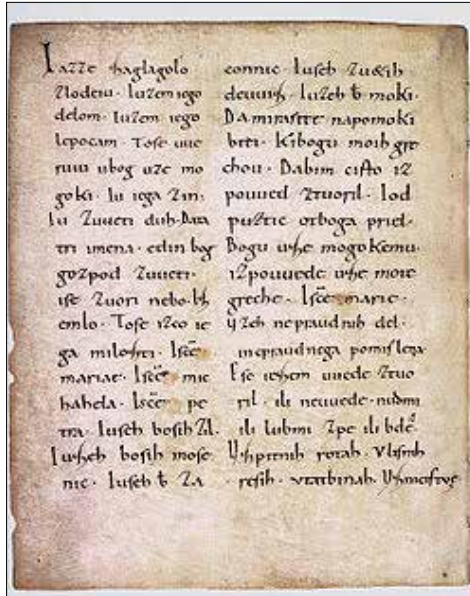 Iazze zaglagolo
zlodeiu · Iuzem iego
delom · Iuzem iego
lepocam · Tose uue
ruiu ubog uze mo
goki · Iu iega zin ·
Iu zuueti duh · Data
tri imena · edin bog
gozpod zuueti ·
ise zuori nebo · Iz
emlo · Tose izco ie
ga milozti · Isc̄e
mariae · Isc̄e mic
hahela · Isc̄e pe
tra · Iuseh bosih zil ·
Iuseh bosih mose
nic · Iuseh b̄ za
connic · Iuseh zuetih
deuuiz · Iuzeh b̄ moki ·
Da mirasite napomoki
biti · Kibogu moih gre
chou · Dabim cisto iz
pouued ztuoril · Iod
puztic otboga priel ·
Bogu uze mogokemu ·
izpouuede uze moie
greche · Isc̄e marie ·
Uzeh nepraudnih del ·
inepraudnega pomislena
Ese iezem uuede ztuo
ril · ili neuuede · nudmi
ili lubmi zpe ili bde ·
Uzpitnih rotah · Vlisnih
resih · vtatbinah · Uznicistuе